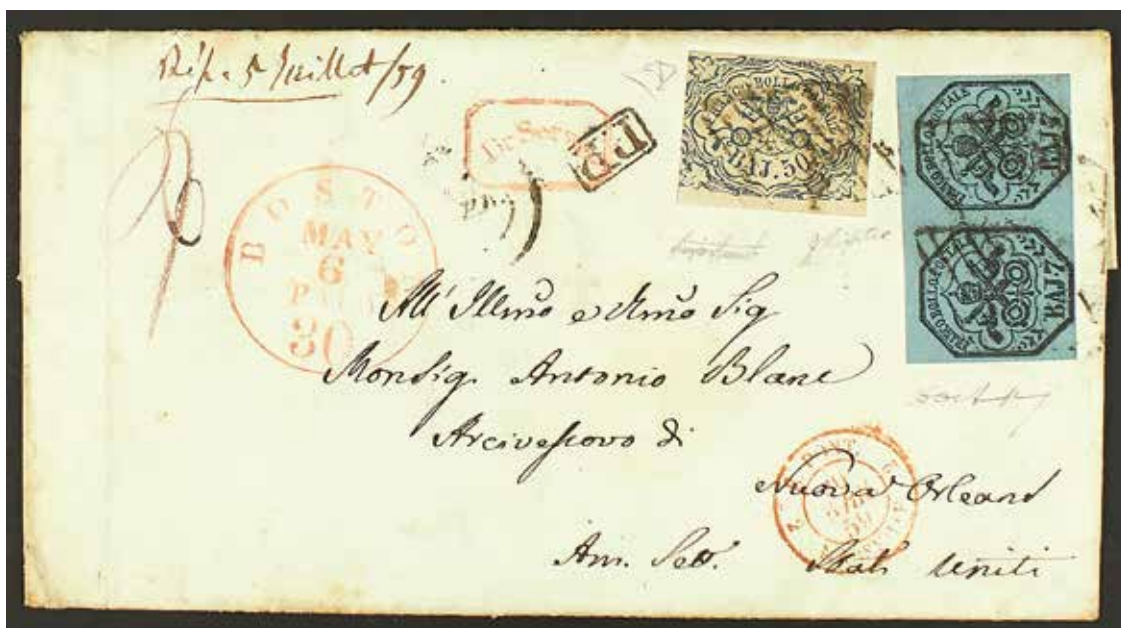 Rép. 5 Juillet/59.
P.D
FRANCO BOLLO POSTALE
BAJ. 50
FRANCO BOLLO POSTALE
BAJ 7
FRANCO BOLLO POSTALE
BAJ 7
BOSTON
MAY
6
30
All' Illmo e Rmo Sig
Monsig. Antonio Blanc
Arcivescovo di
Nuova Orleans
Am. Set. Stati Uniti
PONT.
59
2 2